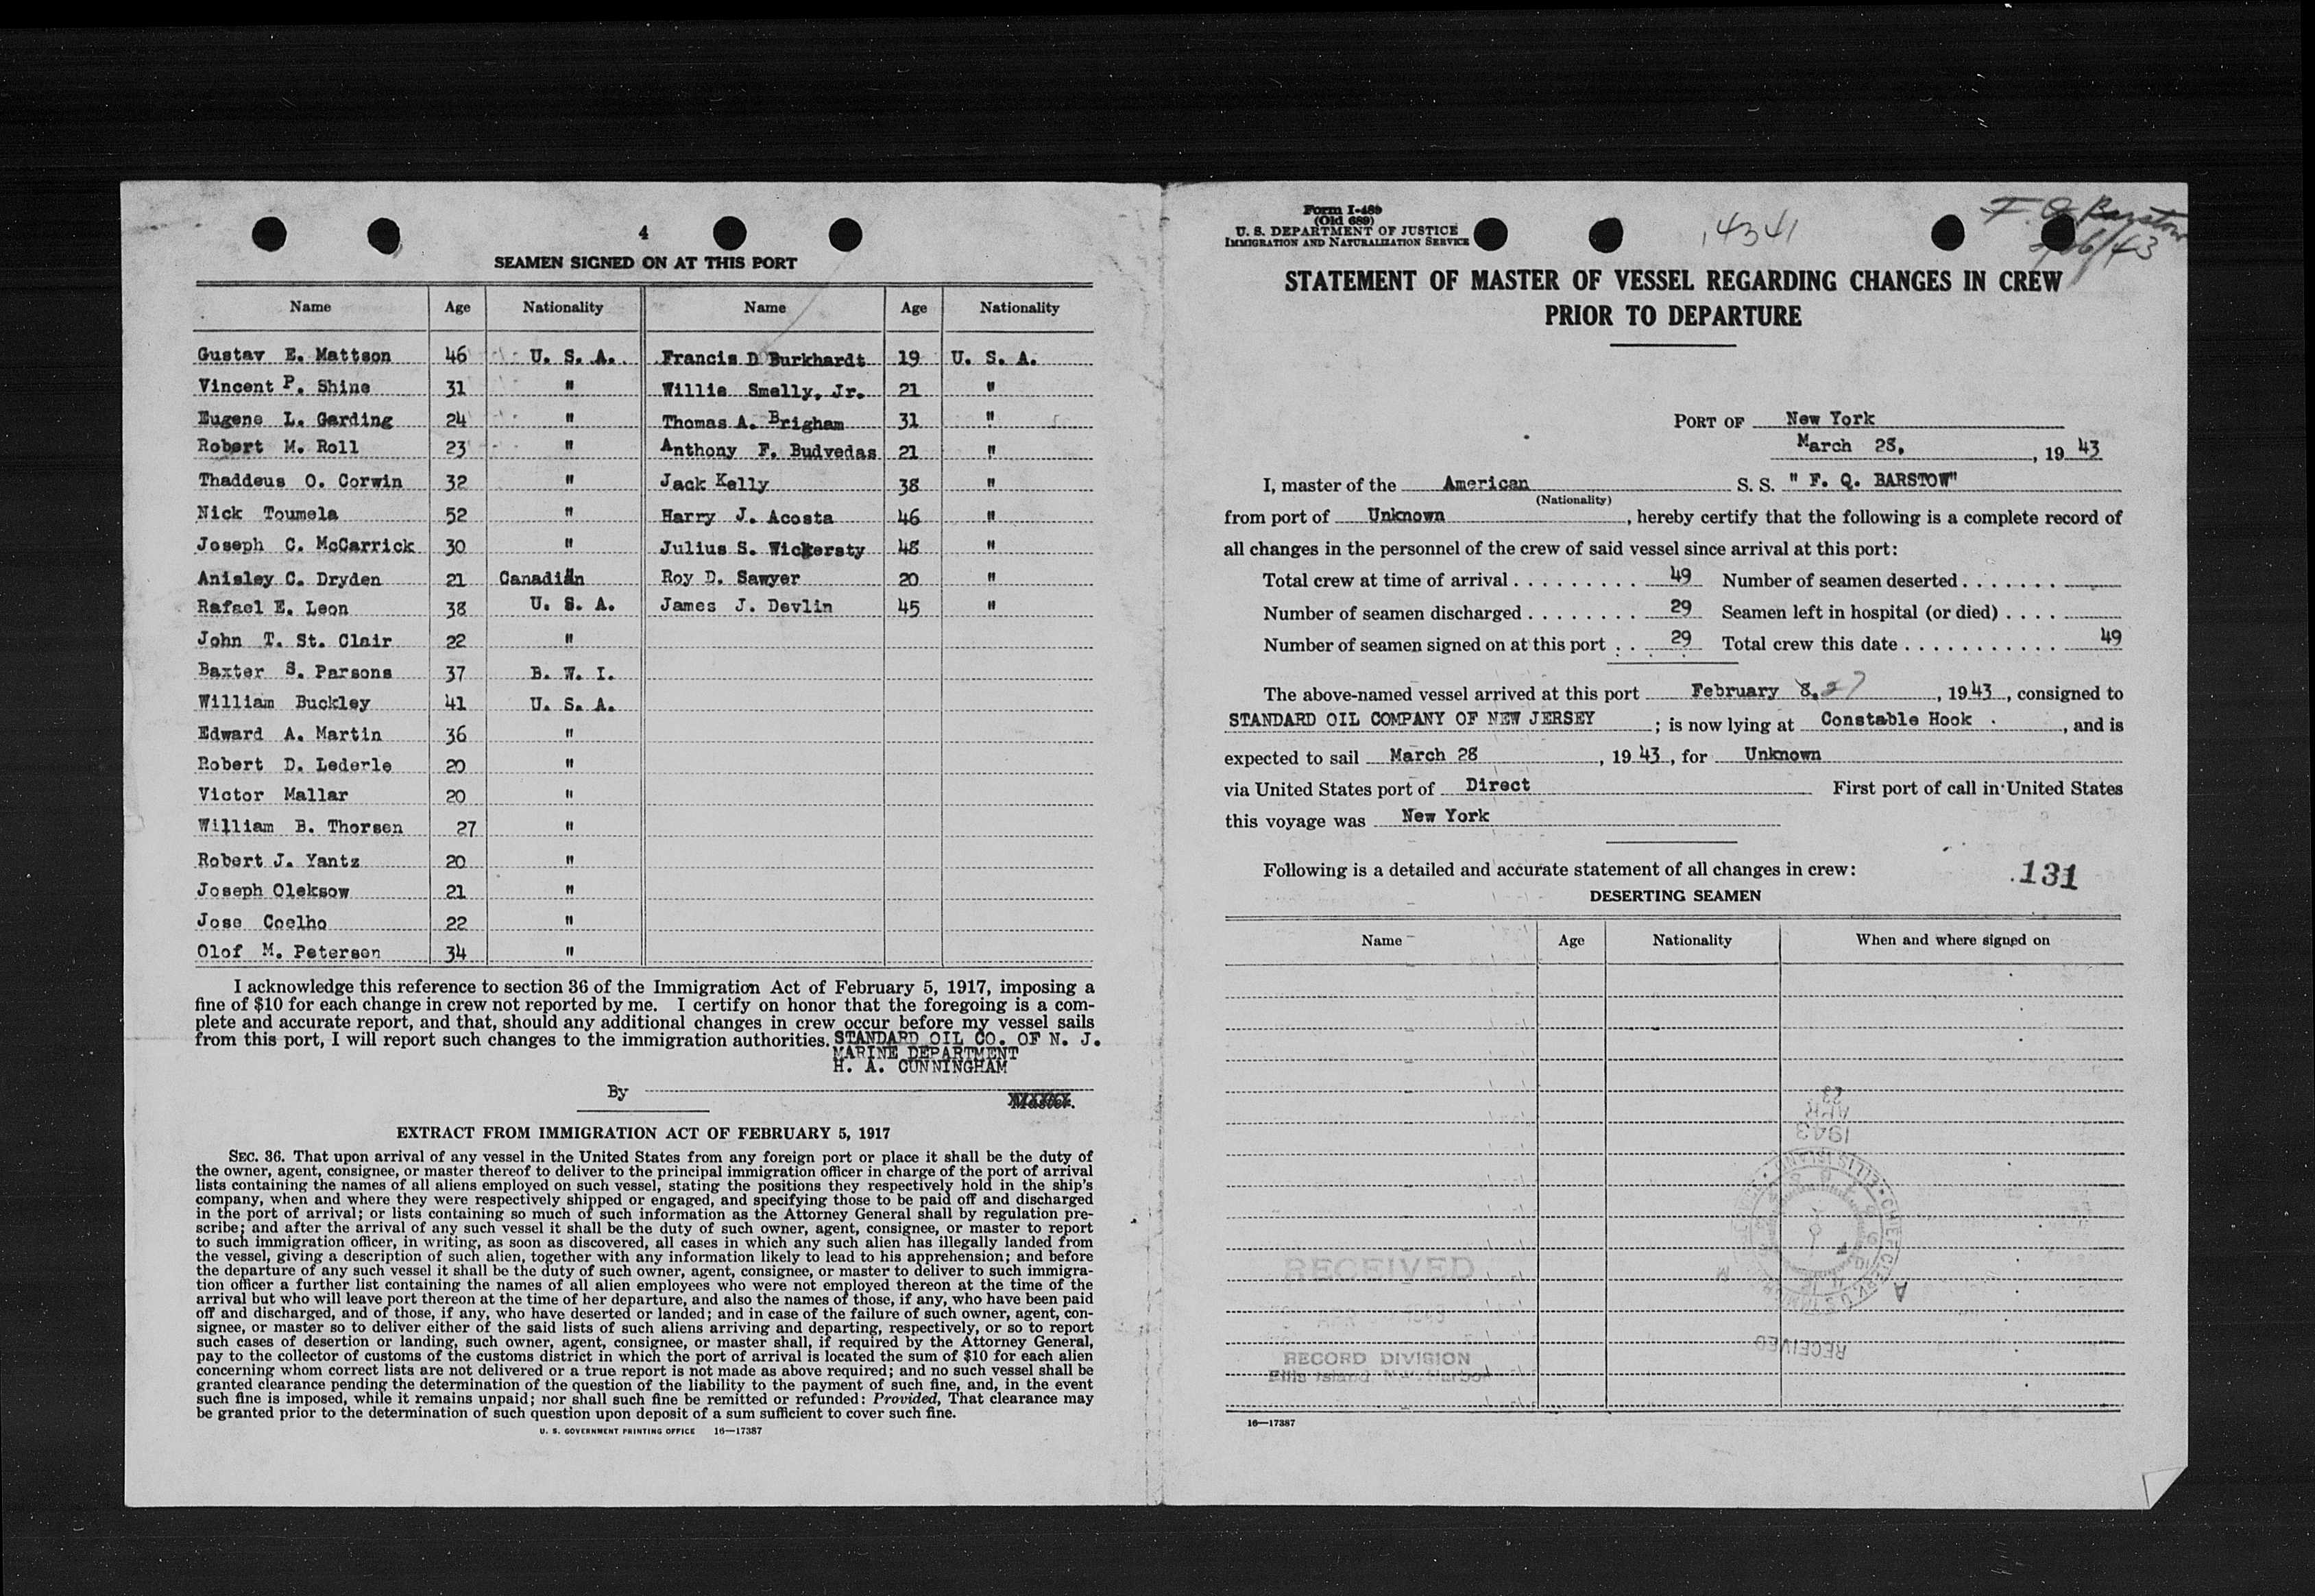 4
SEAMEN SIGNED ON AT THIS PORT
Name Age Nationality Name Age Nationality
Gustav E. Mattson 46 U. S. A. Francis D Burkhardt 19 U. S. A.
Vincent P. Shine 31 " Willie Smelly, Jr. 21 "
Eugene L. Garding 24 " Thomas A. Brigham 31 "
Robert M. Roll 23 " Anthony F. Budvedas 21 "
Thaddeus O. Corwin 32 " Jack Kelly 38 "
Nick Toumela 52 " Harry J. Acosta 46 "
Joseph C. McCarrick 30 " Julius S. Wickersty 48 "
Anisley C. Dryden 21 Canadian Roy D. Sawyer 20 "
Rafael E. Leon 38 U. S. A. James J. Devlin 45 "
John T. St. Clair 22 "
Baxter S. Parsons 37 B. W. I.
William Buckley 41 U. S. A.
Edward A. Martin 36 "
Robert D. Lederle 20 "
Victor Mallar 20 "
William B. Thorsen 27 "
Robert J. Yantz 20 "
Joseph Oleksow 21 "
Jose Coelho 22 "
Olof M. Petersen 34 "
I acknowledge this reference to section 36 of the Immigration Act of February 5, 1917, imposing a
fine of $10 for each change in crew not reported by me. I certify on honor that the foregoing is a com-
plete and accurate report, and that, should any additional changes in crew occur before my vessel sails
from this port, I will report such changes to the immigration authorities. STANDARD OIL CO. OF N. J.
MARINE DEPARTMENT
H. A. CUNNINGHAM
By
Master.
EXTRACT FROM IMMIGRATION ACT OF FEBRUARY 5, 1917
SEC. 36. That upon arrival of any vessel in the United States from any foreign port or place it shall be the duty of
the owner, agent, consignee, or master thereof to deliver to the principal immigration officer in charge of the port of arrival
lists containing the names of all aliens employed on such vessel, stating the positions they respectively hold in the ship's
company, when and where they were respectively shipped or engaged, and specifying those to be paid off and discharged
in the port of arrival; or lists containing so much of such information as the Attorney General shall by regulation pre-
scribe; and after the arrival of any such vessel it shall be the duty of such owner, agent, consignee, or master to report
to such immigration officer, in writing, as soon as discovered, all cases in which any such alien has illegally landed from
the vessel, giving a description of such alien, together with any information likely to lead to his apprehension; and before
the departure of any such vessel it shall be the duty of such owner, agent, consignee, or master to deliver to such immigra-
tion officer a further list containing the names of all alien employees who were not employed thereon at the time of the
arrival but who will leave port thereon at the time of her departure, and also the names of those, if any, who have been paid
off and discharged, and of those, if any, who have deserted or landed; and in case of the failure of such owner, agent, con-
signee, or master so to deliver either of the said lists of such aliens arriving and departing, respectively, or so to report
such cases of desertion or landing, such owner, agent, consignee, or master shall, if required by the Attorney General,
pay to the collector of customs of the customs district in which the port of arrival is located the sum of $10 for each alien
concerning whom correct lists are not delivered or a true report is not made as above required; and no such vessel shall be
granted clearance pending the determination of the question of the liability to the payment of such fine, and, in the event
such fine is imposed, while it remains unpaid; nor shall such fine be remitted or refunded: Provided, That clearance may
be granted prior to the determination of such question upon deposit of a sum sufficient to cover such fine.
U. S. GOVERNMENT PRINTING OFFICE 16—17387
Form I-489
(Old 689)
U. S. DEPARTMENT OF JUSTICE
IMMIGRATION AND NATURALIZATION SERVICE
14341
F. Q Barstow
STATEMENT OF MASTER OF VESSEL REGARDING CHANGES IN CREW
PRIOR TO DEPARTURE
PORT OF New York
March 28, , 19 43
I, master of the American S. S. " F. Q. BARSTOW"
(Nationality)
from port of Unknown , hereby certify that the following is a complete record of
all changes in the personnel of the crew of said vessel since arrival at this port:
Total crew at time of arrival 49 Number of seamen deserted
Number of seamen discharged 29 Seamen left in hospital (or died)
Number of seamen signed on at this port 29 Total crew this date 49
The above-named vessel arrived at this port February 8, 27 , 1943 , consigned to
STANDARD OIL COMPANY OF NEW JERSEY ; is now lying at Constable Hook . , and is
expected to sail March 28 , 19 43 , for Unknown
via United States port of Direct First port of call in United States
this voyage was New York
Following is a detailed and accurate statement of all changes in crew:
131
DESERTING SEAMEN
Name Age Nationality When and where signed on
23
APR
1943
ELLIS ISLAND
RECEIVED
RECEIVED
APR
RECORD DIVISION
Ellis Island
16—17387